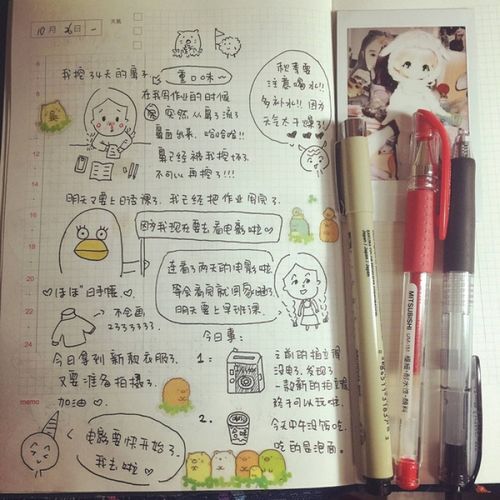 10月26日 一
天気
我挖了4天的鼻子.
重口味~
在我写作业的时候
突然从鼻子流了
鼻血出来, 哈哈哈!!
鼻已经被我挖坏了.
不可以再挖了!!!
秋季要
注意喝水!!
多补水!! 因为
天气太干燥了!
明天又要上日语课了. 我已经把作业写完了.
因为我现在要去看电影啦♡
连看了两天的电影啦
等会看完就回家睡了
明天要上早班课.
♡ほぼ日手帳.♡
不会画
23333333.
今日事:
今日拿到新款衣服了.
又要准备拍摄了.
加油♡.
1:
之前的拍立得
没电了.发现了
一款新的拍立得
终于可以玩啦.
2.
今天中午没饭吃.
吃的是泡面。
电影要快开始了.
我去啦♡
memo
8
12
14
16
18
20
22
24
MITSUBISHI